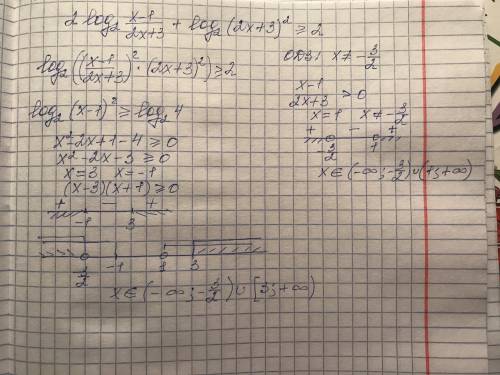 2 log₂ (x-1)/(2x+3) + log₂ (2x+3)² ≥ 2
log₂(((x-1)/(2x+3))² · (2x+3)²) ≥ 2
log₂ (x-1)² ≥ log₂ 4
x²-2x+1-4 ≥ 0
x²-2x-3 ≥ 0
x=3 x=-1
(x-3)(x+1) ≥ 0
+ - +
-1 3
-3/2 -1 1 3
x∈(-∞;-3/2)∪[3;+∞)
ОДЗ: x≠-3/2
(x-1)/(2x+3) > 0
x=1 x≠-3/2
+ - +
-3/2 1
x∈(-∞;-3/2)∪(1;+∞)